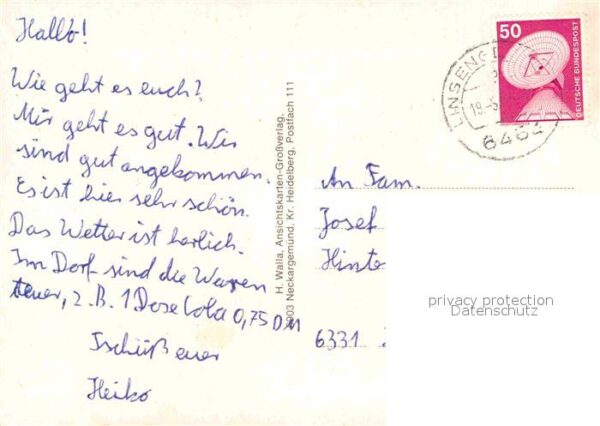 Hallo!
Wie geht es euch?
Mir geht es gut. Wir
sind gut angekommen.
Es ist hier sehr schön.
Das Wetter ist herlich.
Im Dorf sind die Waren
teuer, z.B. 1 Dose Cola 0,75 DM
Tschüß euer
Heiko
H. Walla, Ansichtskarten-Großverlag,
6903 Neckargemünd, Kr. Heidelberg, Postfach 111
50
DEUTSCHE BUNDESPOST
6464
An Fam.
Josef
Hinte
6331
privacy protection
Datenschutz